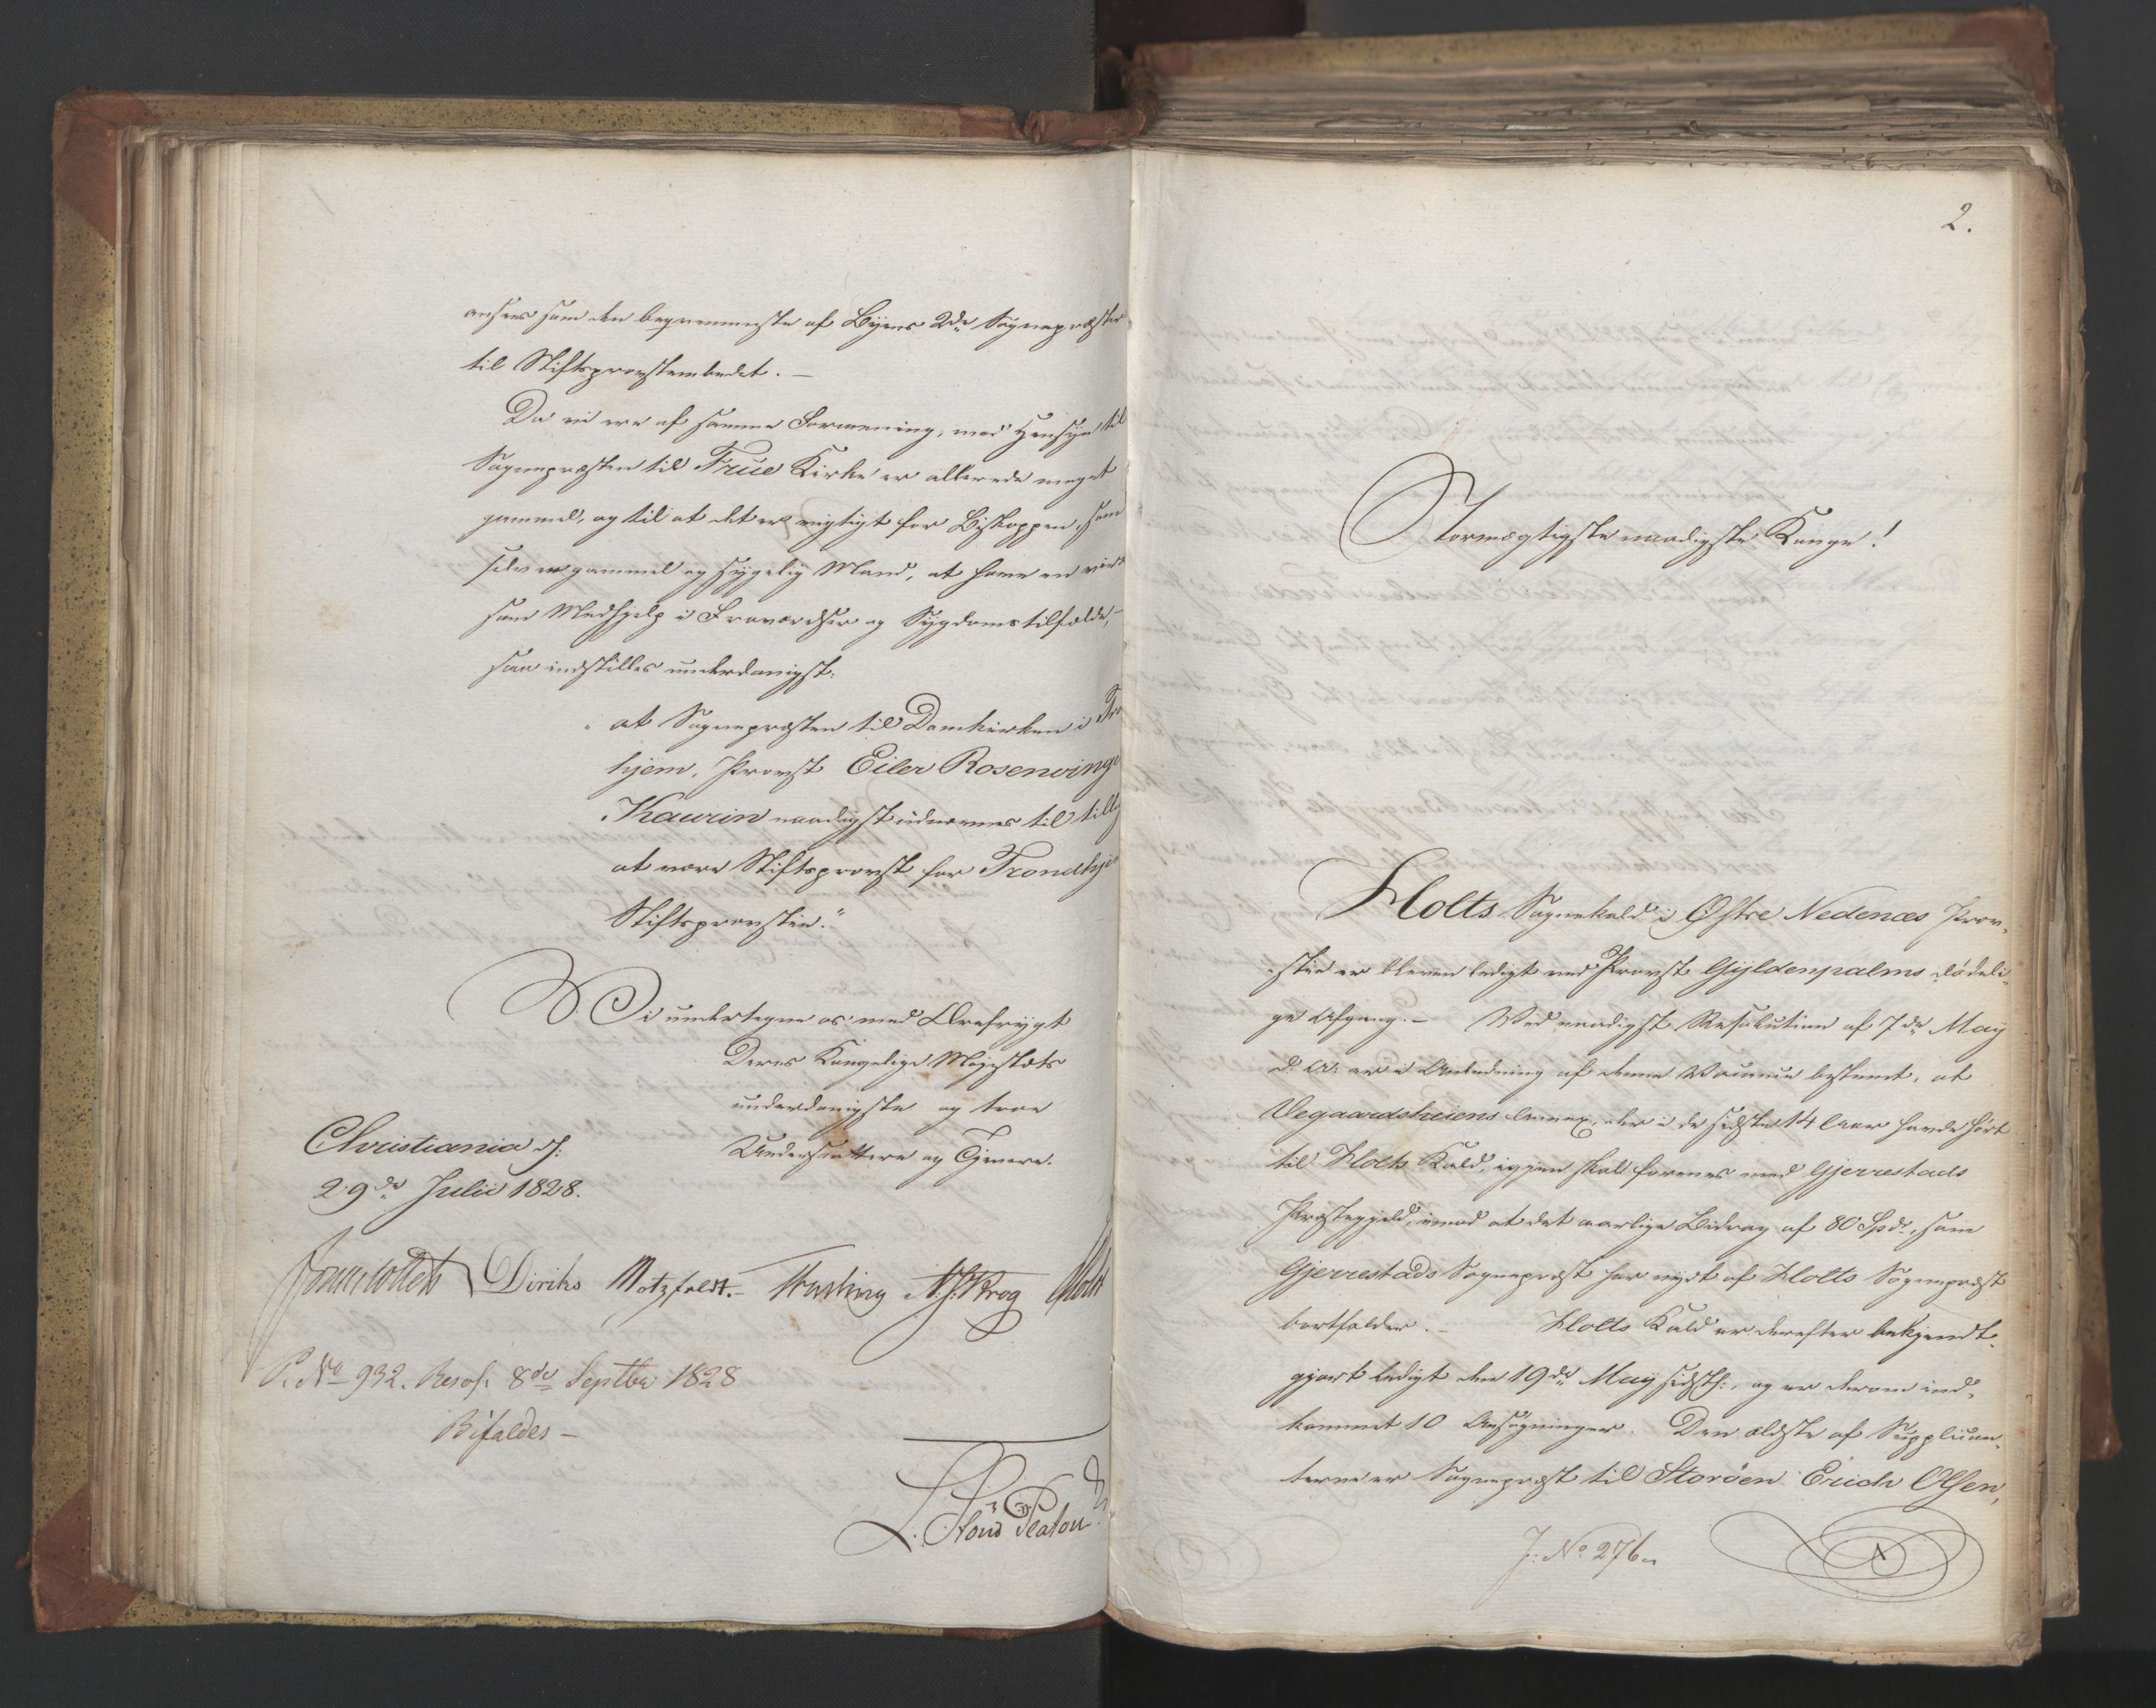 ansees som den beqvemmeste af Byens 2de Sognepræster
til Stiftsprovstembedet. —
Da vi ere af samme Formening, med Hensyn til
Sognepræsten til Frue Kirke er allerede meget
gammel, og til at det er vigtigt for Biskoppen, som
selv er gammel og sygelig Mand, at have en virk
som Medhjelp i Fraværelses og Sygdomstilfælde,
saa indstilles underdanigst:
"at Sognepræsten til Domkirken i Tro
hjem, Provst Eiler Rosenvinge
Kaurin naadigst udnævnes til till
at være Stiftsprovst for Trondhje
Stiftsprovstie."
Vi undertegne os med Ærefrygt
Deres Kongelige Majestæts
underdanigste og troe
Undersaattere og Tjenere.
Christiania d:
29de Julii 1828.
Jonas Collett Diriks Motzfeldt. Fasting N.J. Krog Holst
P. No 932. Resol: 8de Septbr 1828
Bifaldes —
2.
Stormægtigste naadigste Konge!
Holts Sognekald i Østre Nedenæs Prov-
stie er bleven ledigt ved Provst Gyldenpalms dødeli-
ge Afgang. — Ved naadigst Resolution af 7de May
d: A: er i Anledning af denne Vacance bestemt, at
Vegaardsheiens Annex, der i de sidste 14 Aar havde hørt
til Holts Kald, igjen skal forenes med Gjerrestads
Præstegjeld, imod at det aarlige Bidrag af 80 Spd:, som
Gjerrestads Sognepræst har nydt af Holts Sognepræst
bortfalder. — Holts Kald er derefter bekjendt-
gjort ledigt den 19de May sidstl:, og er derom ind-
kommet 10 Ansøgninger. Den ældste af Supplican-
terne er Sognepræst til Storøen Erich Olsen,
J: No 276